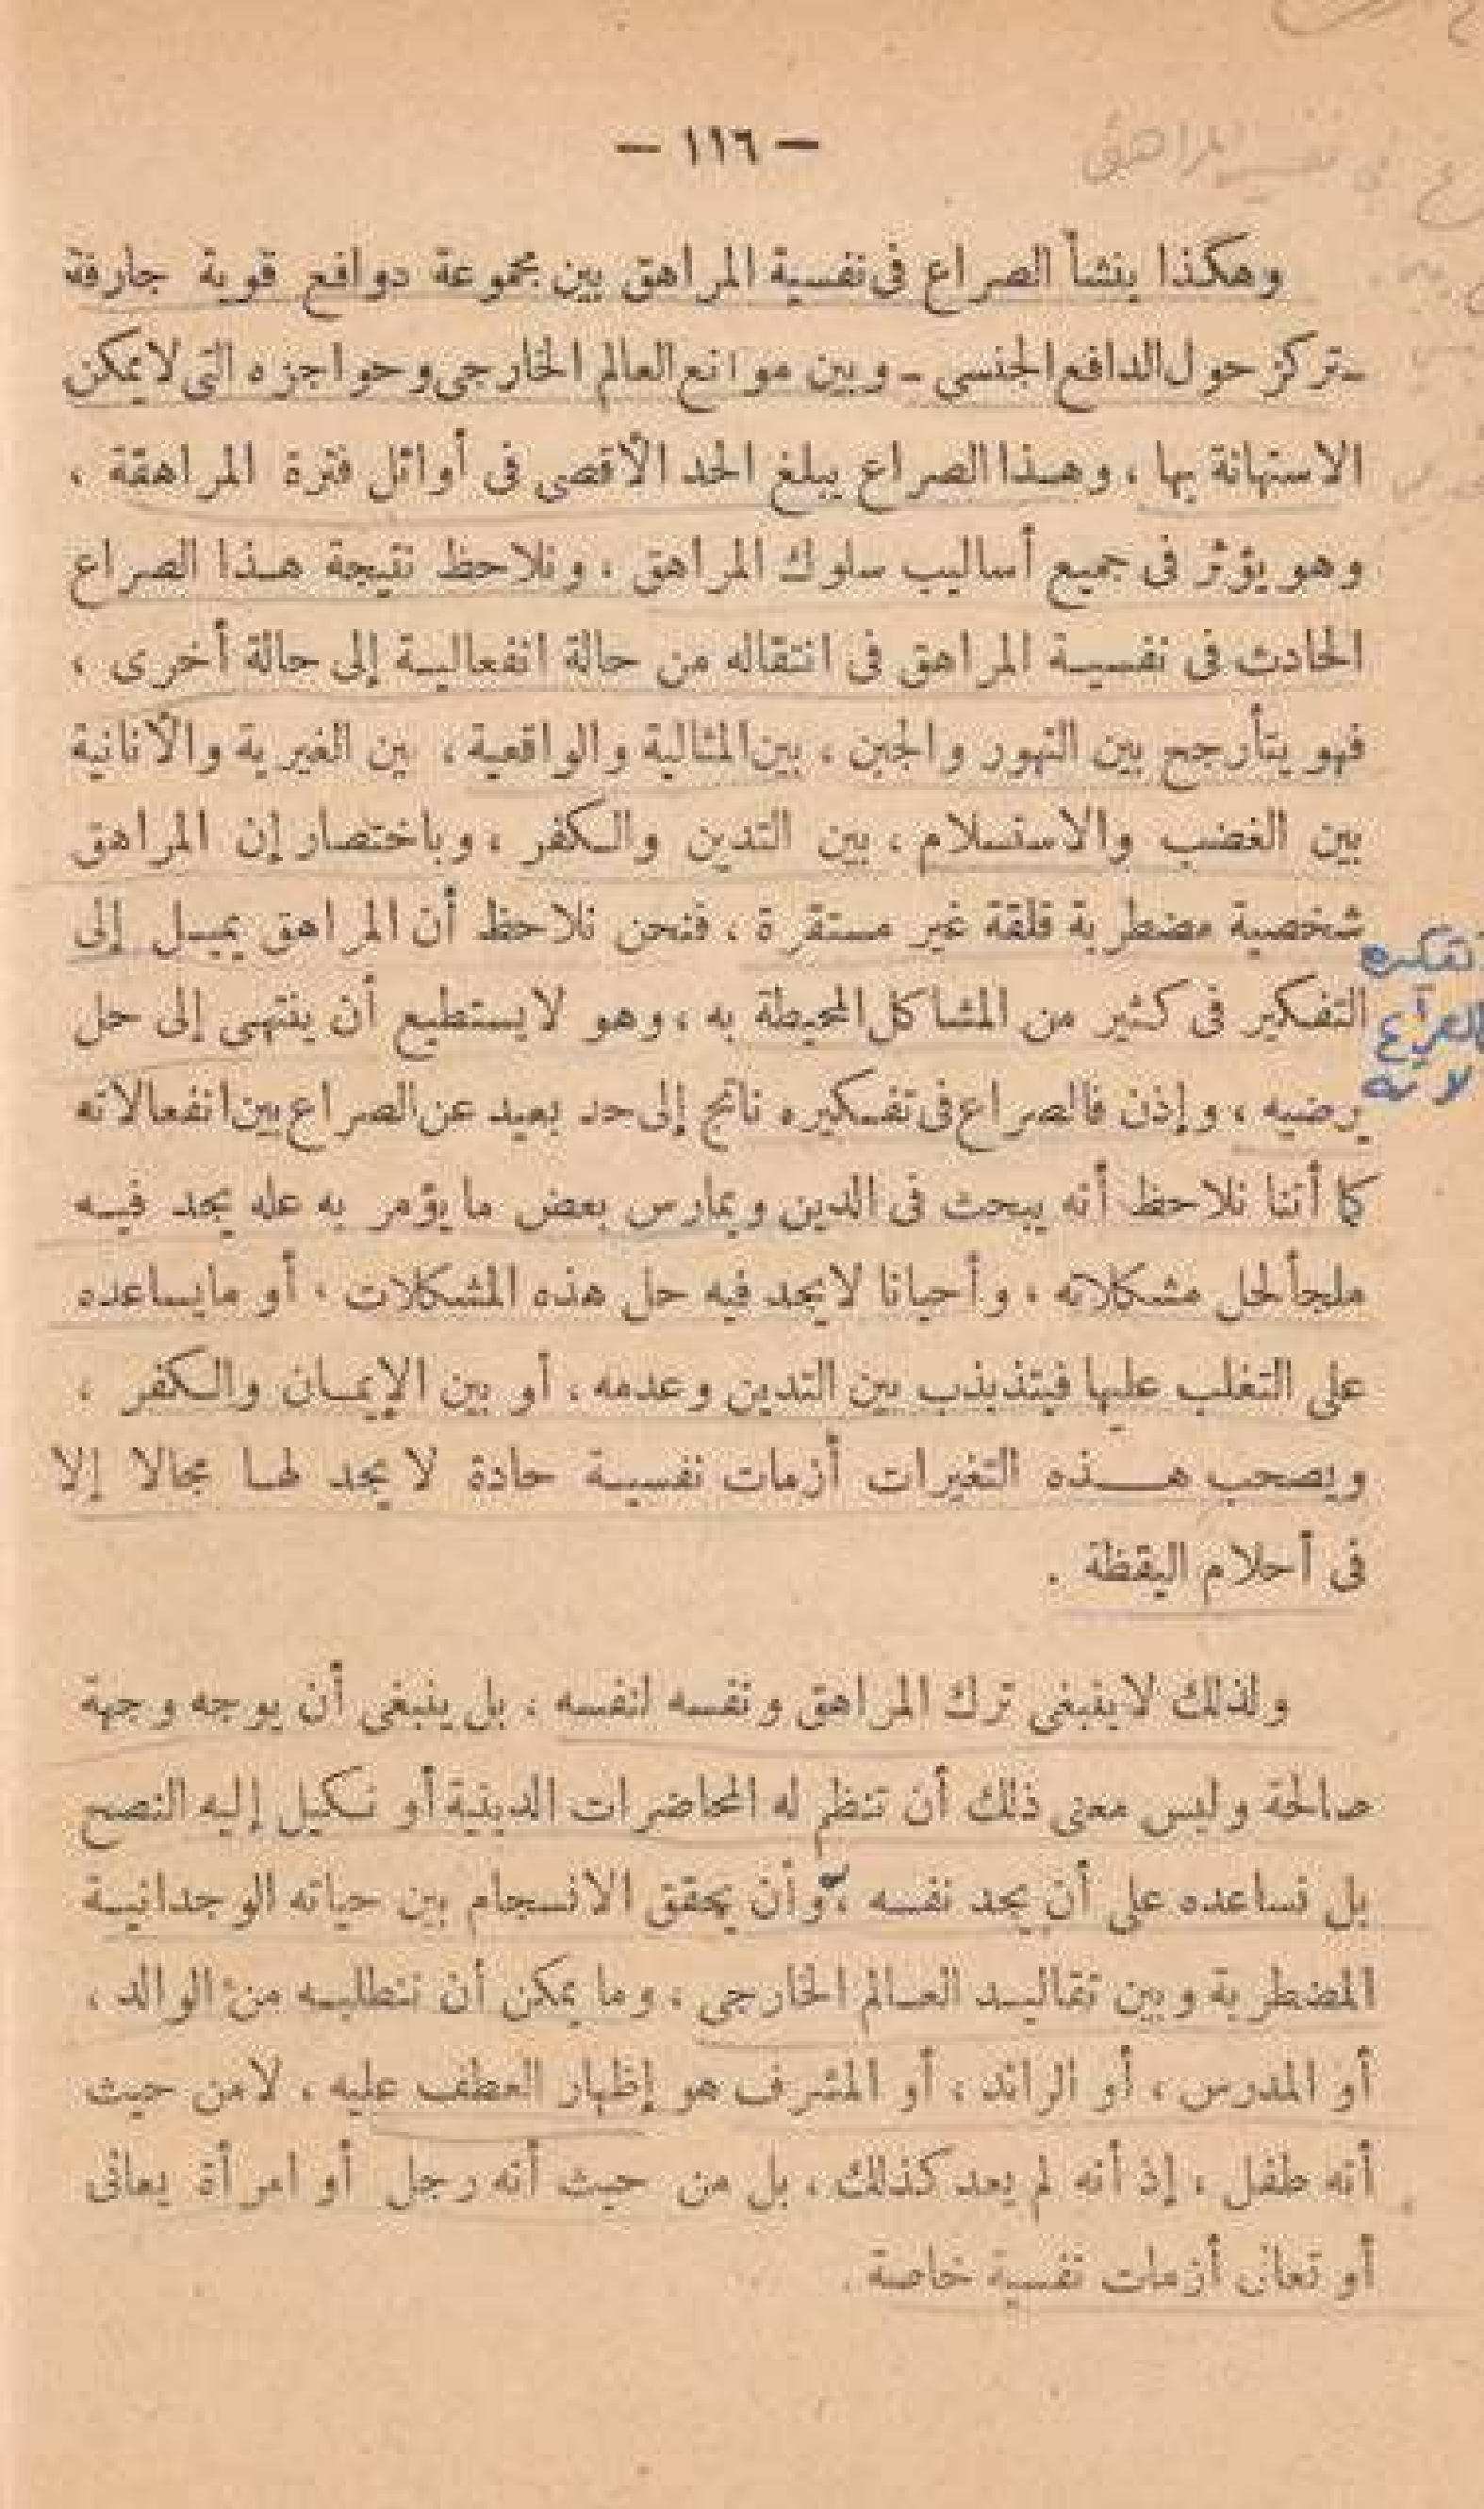 — ١١٦ —
نفسية المراهق
وهكذا ينشأ الصراع فى نفسية المراهق بين مجموعة دوافع قوية جارفة
ـ تركز حول الدافع الجنسى ـ وبين موانع العالم الخارجى وحواجزه التى لا يمكن
الاستهانة بها ، وهذا الصراع يبلغ الحد الأقصى فى أوائل فترة المراهقة ،
وهو يؤثر فى جميع أساليب سلوك المراهق ، ونلاحظ نتيجة هذا الصراع
الحادث فى نفسية المراهق فى انتقاله من حالة انفعالية إلى حالة أخرى ،
فهو يتأرجح بين التهور والجبن ، بين المثالية والواقعية ، بين الغيرية والأنانية
بين الغضب والاستسلام ، بين التدين والكفر ، وباختصار إن المراهق
شخصية مضطربة قلقة غير مستقرة ، فنحن نلاحظ أن المراهق يميل إلى
التفكير فى كثير من المشاكل المحيطة به ، وهو لا يستطيع أن ينتهى إلى حل
يرضيه ، وإذن فالصراع فى تفكيره ناتج إلى حد بعيد عن الصراع بين انفعالاته
كما أننا نلاحظ أنه يبحث فى الدين ويمارس بعض ما يؤمر به عله يجد فيه
ملجأ لحل مشكلاته ، وأحيانا لا يجد فيه حل هذه المشكلات ، أو ما يساعده
على التغلب عليها فيتذبذب بين التدين وعدمه ، أو بين الإيمان والكفر ،
ويصحب هذه التغيرات أزمات نفسية حادة لا يجد لها مجالا إلا
فى أحلام اليقظة .
ولذلك لا ينبغى ترك المراهق ونفسه لنفسه ، بل ينبغى أن يوجه وجهة
صالحة وليس معنى ذلك أن تنظم له المحاضرات الدينية أو نكيل إليه النصح
بل نساعده على أن يجد نفسه ، وأن يحقق الانسجام بين حياته الوجدانية
المضطربة وبين تقاليد العالم الخارجى ، وما يمكن أن نتطلبه من الوالد ،
أو المدرس ، أو الرائد ، أو المشرف هو إظهار العطف عليه ، لا من حيث
أنه طفل ، إذ أنه لم يعد كذلك ، بل من حيث أنه رجل أو امرأة يعانى
أو تعانى أزمات نفسية خاصة .